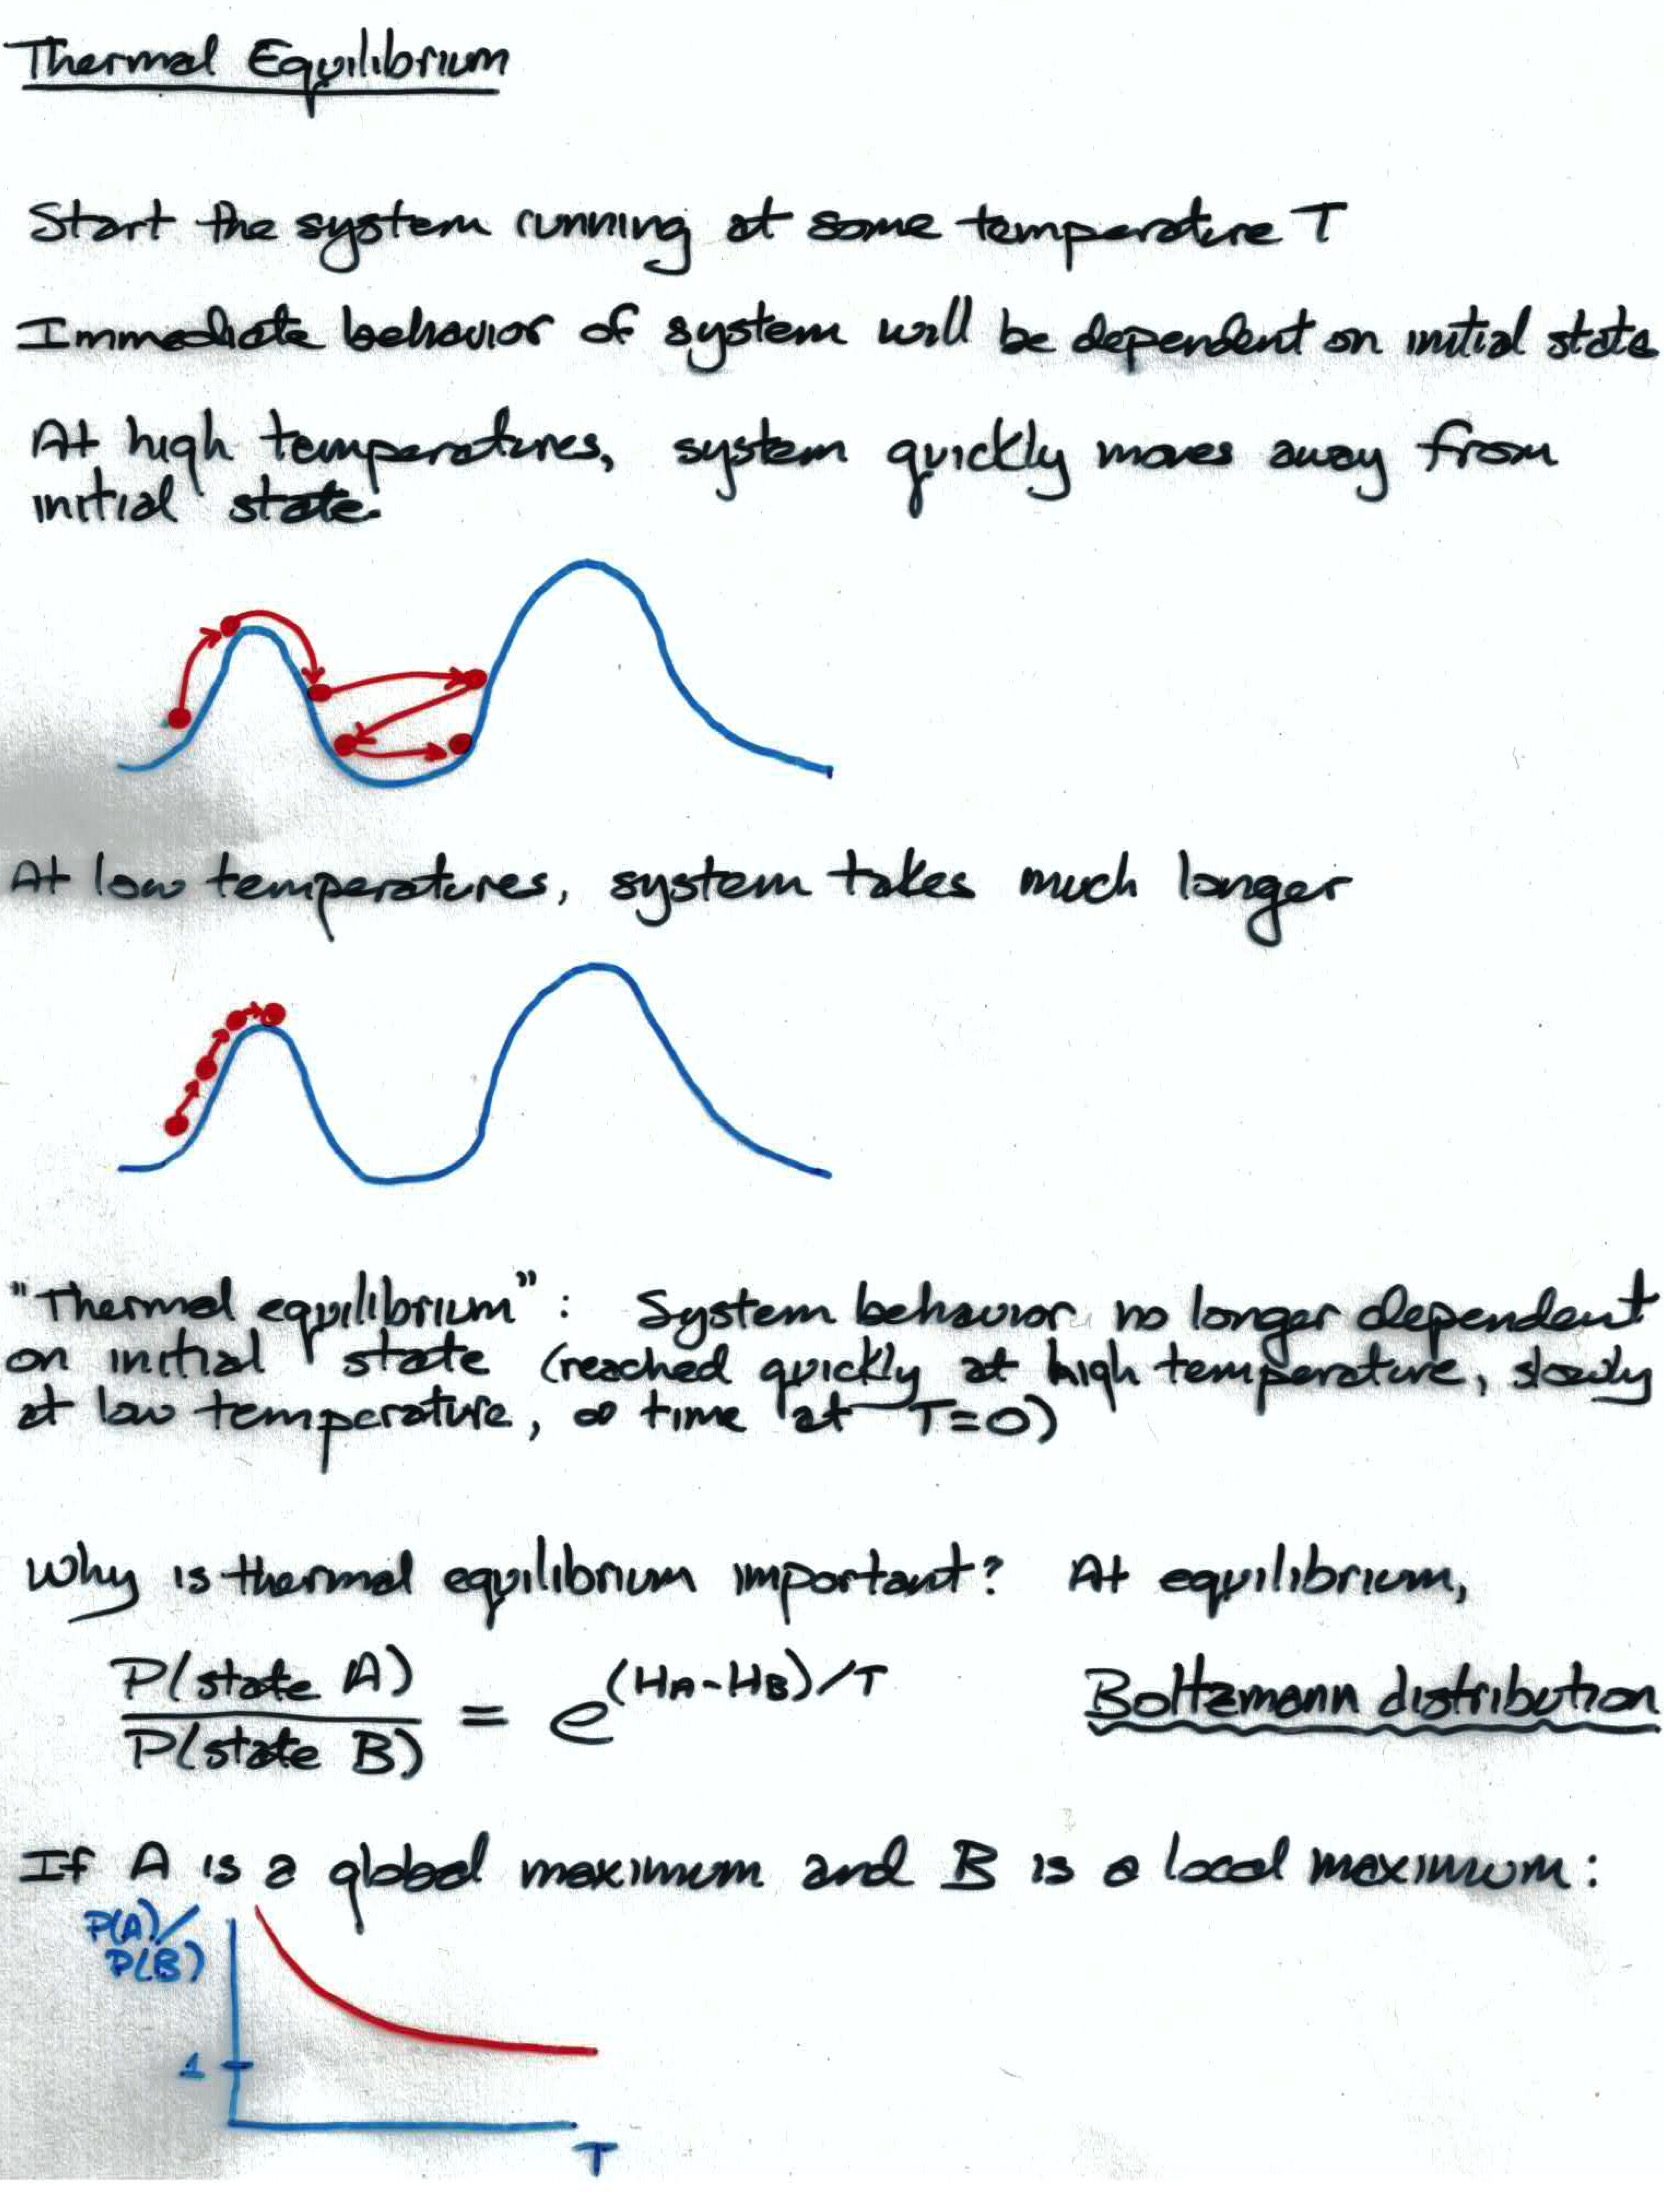 Thermal Equilibrium
Start the system running at some temperature T
Immediate behavior of system will be dependent on initial state
At high temperatures, system quickly moves away from
initial state.
At low temperatures, system takes much longer
"Thermal equilibrium": System behavior no longer dependent
on initial state (reached quickly at high temperature, slowly
at low temperature, ∞ time at T=0)
Why is thermal equilibrium important? At equilibrium,
P(state A)
P(state B)
= e^(H_A-H_B)/T
Boltzmann distribution
If A is a global maximum and B is a local maximum:
P(A)/
P(B)
1
T